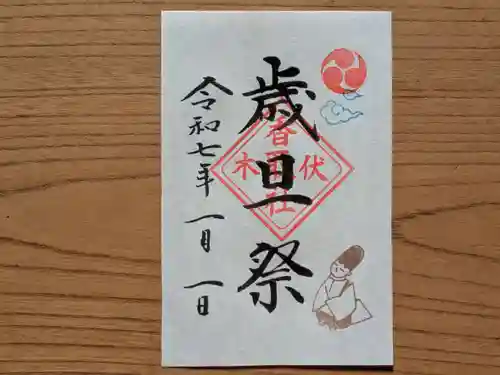 歳旦祭
伏木
香取社
令和七年 一月 一日